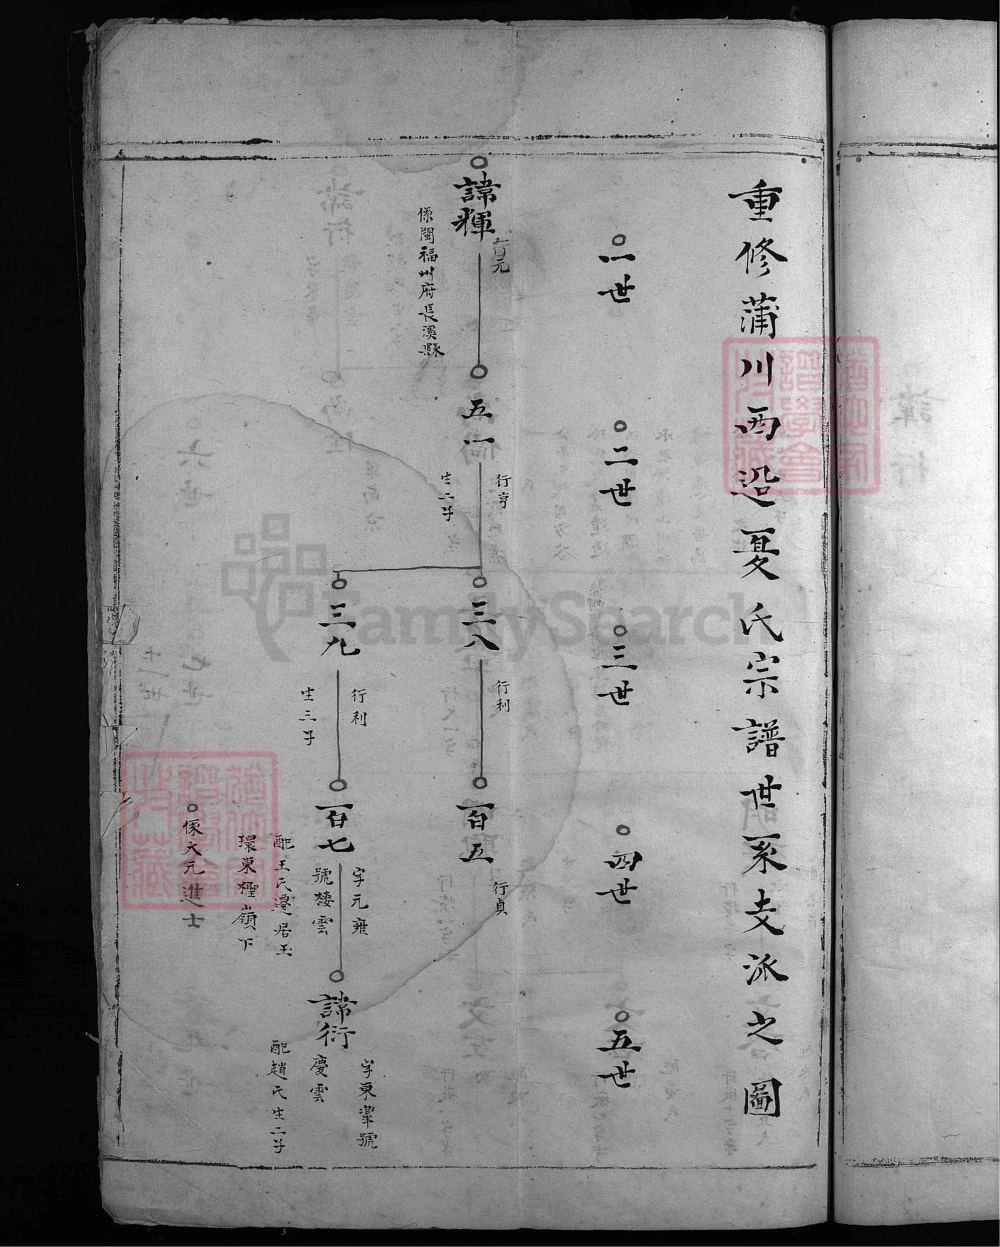 重修蒲川西𨕖夏氏宗譜世系支派之圖
一世
二世
三世
四世
五世
諱輝
行元
係閩福州府長溪縣
五一
行亨
生二子
三八
行利
百五
行貞
三九
行利
生三子
百七
字元雍
號棲雲
配王氏遷居玉
環東禋嶺下
係大元進士
諱衍
字東澤號
慶雲
配趙氏生二子
FamilySearch